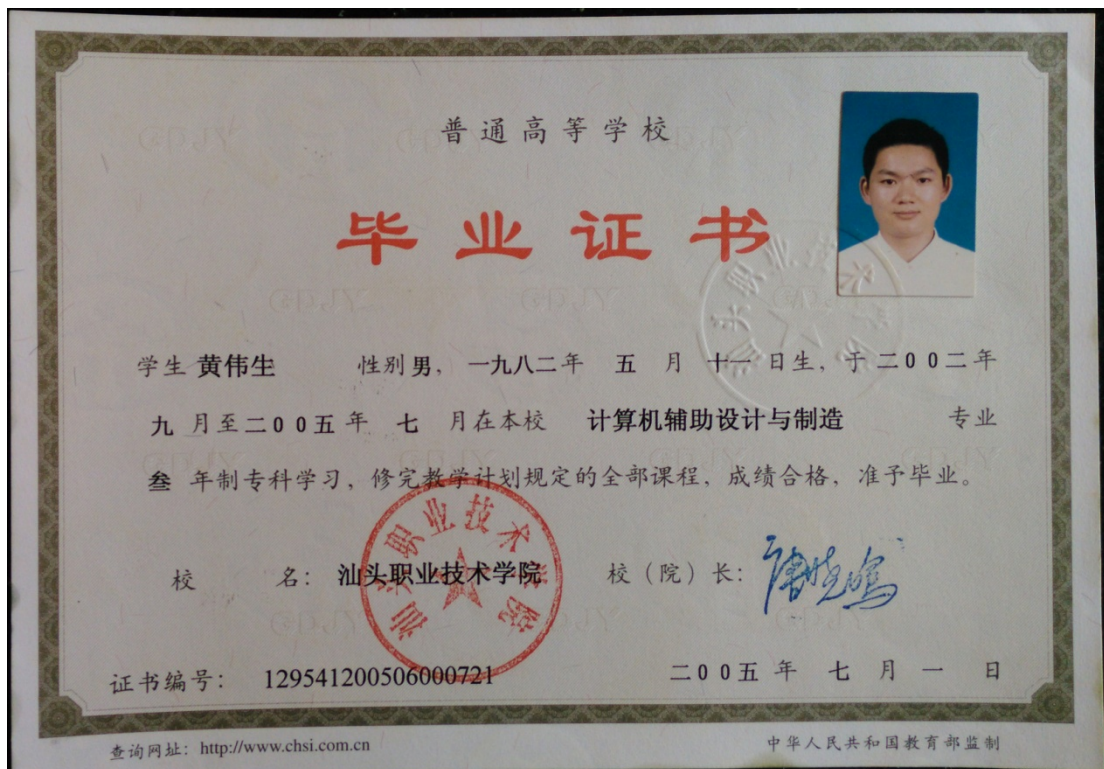 普通高等学校
毕业证书
学生 黄伟生 性别 男, 一九八二年 五 月 十一 日生, 于 二00二年
九 月至二00五年 七 月在本校 计算机辅助设计与制造 专业
叁 年制专科学习, 修完教学计划规定的全部课程, 成绩合格, 准予毕业。
汕头职业技术学院
校 名: 汕头职业技术学院 校(院)长:
汕头职业技术学院
证书编号: 129541200506000721 二00五年 七 月 一 日
查询网址: http://www.chsi.com.cn 中华人民共和国教育部监制